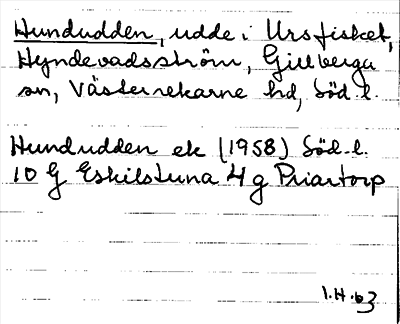 Hundudden, udde i Ursfisket,
Hyndevadsström, Gillberga
sn, Västerrekarne hd, Söd.l.
Hundudden ek (1958) Söd.l.
10 G Eskilstuna 4 g Priartorp
1.H.63